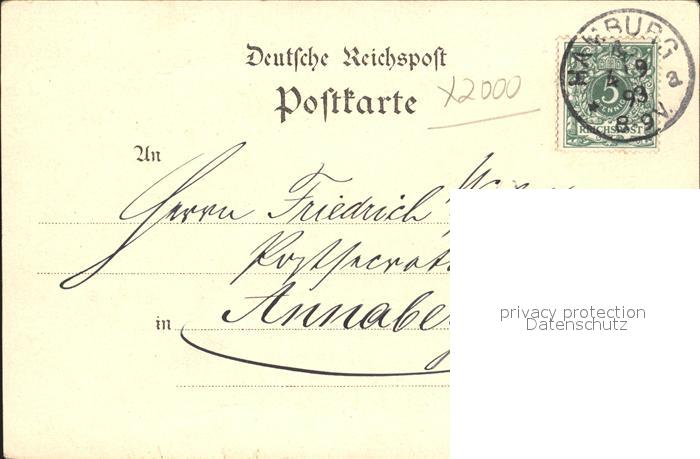 Deutsche Reichspost
Postkarte
X2000
HAMBURG
4
4 9
93
8-9N.
a
5
PFENNIG
REICHSPOST
An
Herrn Friedrich
Postsecret
in Annabe
privacy protection
Datenschutz